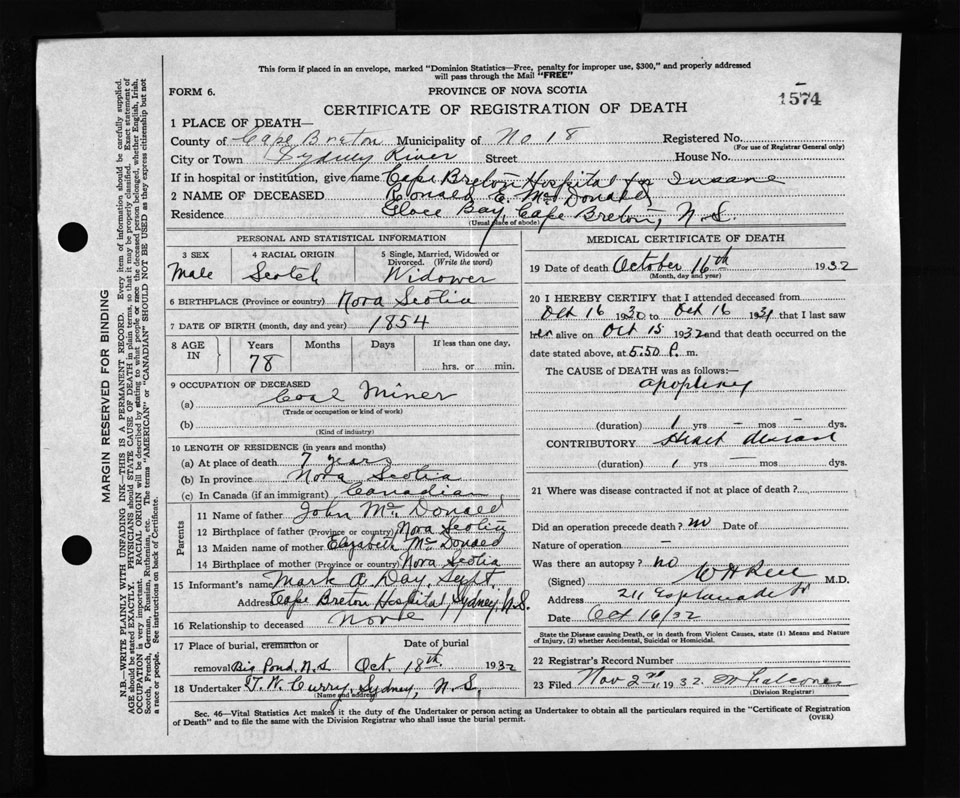 This form if placed in an envelope, marked "Dominion Statistics—Free, penalty for improper use, $300," and properly addressed
will pass through the Mail "FREE"
FORM 6. PROVINCE OF NOVA SCOTIA
1574
CERTIFICATE OF REGISTRATION OF DEATH
1 PLACE OF DEATH—
County of Cape Breton Municipality of No 18 Registered No.
(For use of Registrar General only)
City or Town Sydney River Street House No.
If in hospital or institution, give name Cape Breton Hospital for Insane
2 NAME OF DECEASED Ronald C. McDonald
Residence Glace Bay, Cape Breton, N.S.
(Usual place of abode)
PERSONAL AND STATISTICAL INFORMATION
3 SEX 4 RACIAL ORIGIN 5 Single, Married, Widowed or
Divorced. (Write the word)
Male Scotch Widower
6 BIRTHPLACE (Province or country) Nova Scotia
7 DATE OF BIRTH (month, day and year) 1854
8 AGE IN Years Months Days If less than one day.
78 hrs. or min.
9 OCCUPATION OF DECEASED
(a) Coal Miner
(Trade or occupation or kind of work)
(b)
(Kind of industry)
10 LENGTH OF RESIDENCE (in years and months)
(a) At place of death 7 years
(b) In province Nova Scotia
(c) In Canada (if an immigrant) Canadian
Parents
11 Name of father John McDonald
12 Birthplace of father (Province or country) Nova Scotia
13 Maiden name of mother Elizabeth McDonald
14 Birthplace of mother (Province or country) Nova Scotia
15 Informant's name Mark A. Day, Supt.
Address Cape Breton Hospital, Sydney, N.S.
16 Relationship to deceased None
17 Place of burial, cremation or Date of burial
removal Big Pond, N.S. Oct. 18th. 1932
18 Undertaker T.W. Curry, Sydney, N.S.
Name and address
MEDICAL CERTIFICATE OF DEATH
19 Date of death October 16th 1932
(Month, day and year)
20 I HEREBY CERTIFY that I attended deceased from
Oct 16 1930 to Oct 16 1931 that I last saw
her alive on Oct 15 1932 and that death occurred on
date stated above, at 5.50 P. m.
The CAUSE of DEATH was as follows:
apoplexy
(duration) 1 yrs — mos — dys.
CONTRIBUTORY Heart disease
(duration) 1 yrs — mos dys.
21 Where was disease contracted if not at place of death?
Did an operation precede death? no Date of
Nature of operation —
Was there an autopsy? no
(Signed) M.D.
Address 211 Esplanade
Date Oct 16/32
State the Disease causing Death, or in death from Violent Causes, state (1) Means and Nature
of Injury, (2) whether Accidental, Suicidal or Homicidal.
22 Registrar's Record Number
23 Filed Nov 2nd, 1932. Falconer
(Division Registrar)
Sec. 46—Vital Statistics Act makes it the duty of the Undertaker or person acting as Undertaker to obtain all the particulars required in the "Certificate of Registration
of Death" and to file the same with the Division Registrar who shall issue the burial permit.
(OVER)
MARGIN RESERVED FOR BINDING
N.B.—WRITE PLAINLY WITH UNFADING INK—THIS IS A PERMANENT RECORD. Every item of information should be carefully supplied.
AGE should be stated EXACTLY. PHYSICIANS should STATE CAUSE OF DEATH in plain terms, so that it may be properly classified. Exact statement of
OCCUPATION is very important. RACIAL ORIGIN will be described by stating to what people or race the deceased person belonged, whether English, Irish,
Scotch, French, German, Russian, Ruthenian, etc. The terms "AMERICAN" or "CANADIAN" SHOULD NOT BE USED as they express citizenship but not
a race or people. See instructions on back of Certificate.